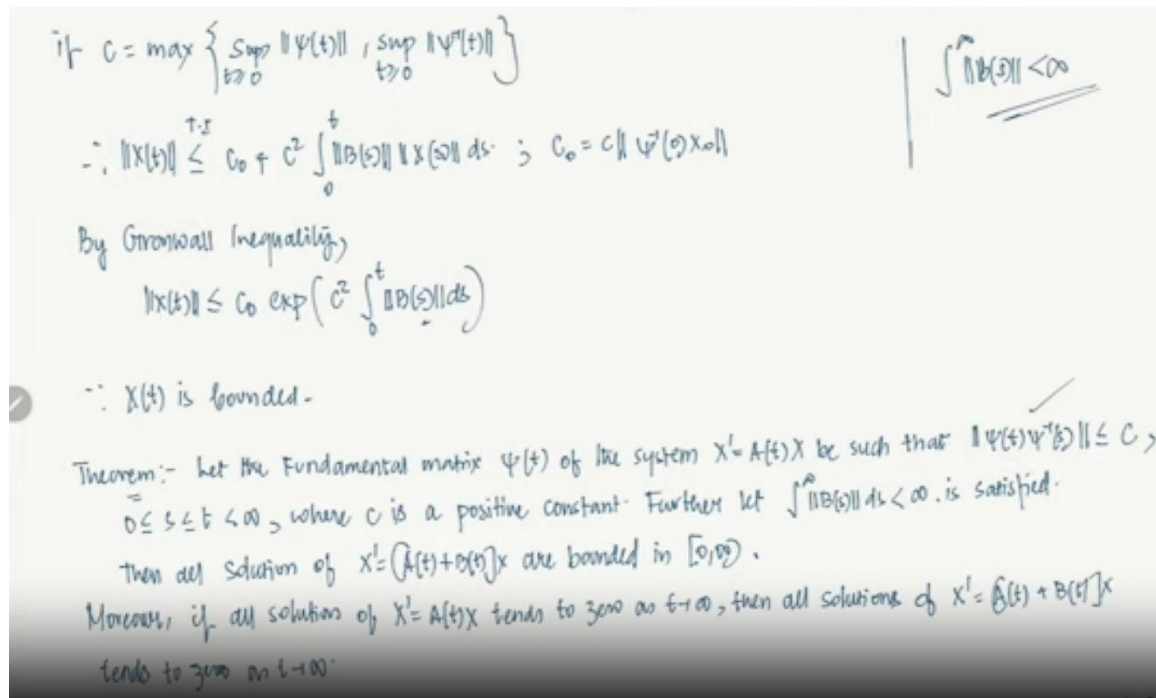 if C = max { sup_{t≥0} ||ψ(t)|| , sup_{t≥0} ||ψ⁻¹(t)|| }
∫^∞ ||B(s)|| < ∞
∴ ||X(t)|| ≤ C₀ + C² ∫₀ᵗ ||B(s)|| ||X(s)|| ds ; C₀ = C|| ψ⁻¹(0) X₀||
By Gronwall Inequality,
||X(t)|| ≤ C₀ exp( C² ∫₀ᵗ ||B(s)||ds )
∴ X(t) is bounded.
Theorem:- Let the Fundamental matrix ψ(t) of the system X' = A(t)X be such that || ψ(t) ψ⁻¹(s) || ≤ C ,
0 ≤ s ≤ t < ∞, where C is a positive constant. Further let ∫^∞ ||B(s)|| ds < ∞. is satisfied.
Then all solution of X' = [A(t)+B(t)]X are bounded in [0,∞).
Moreover, if all solution of X' = A(t)X tends to zero as t→∞, then all solutions of X' = [A(t) + B(t)]X
tends to zero as t→∞.